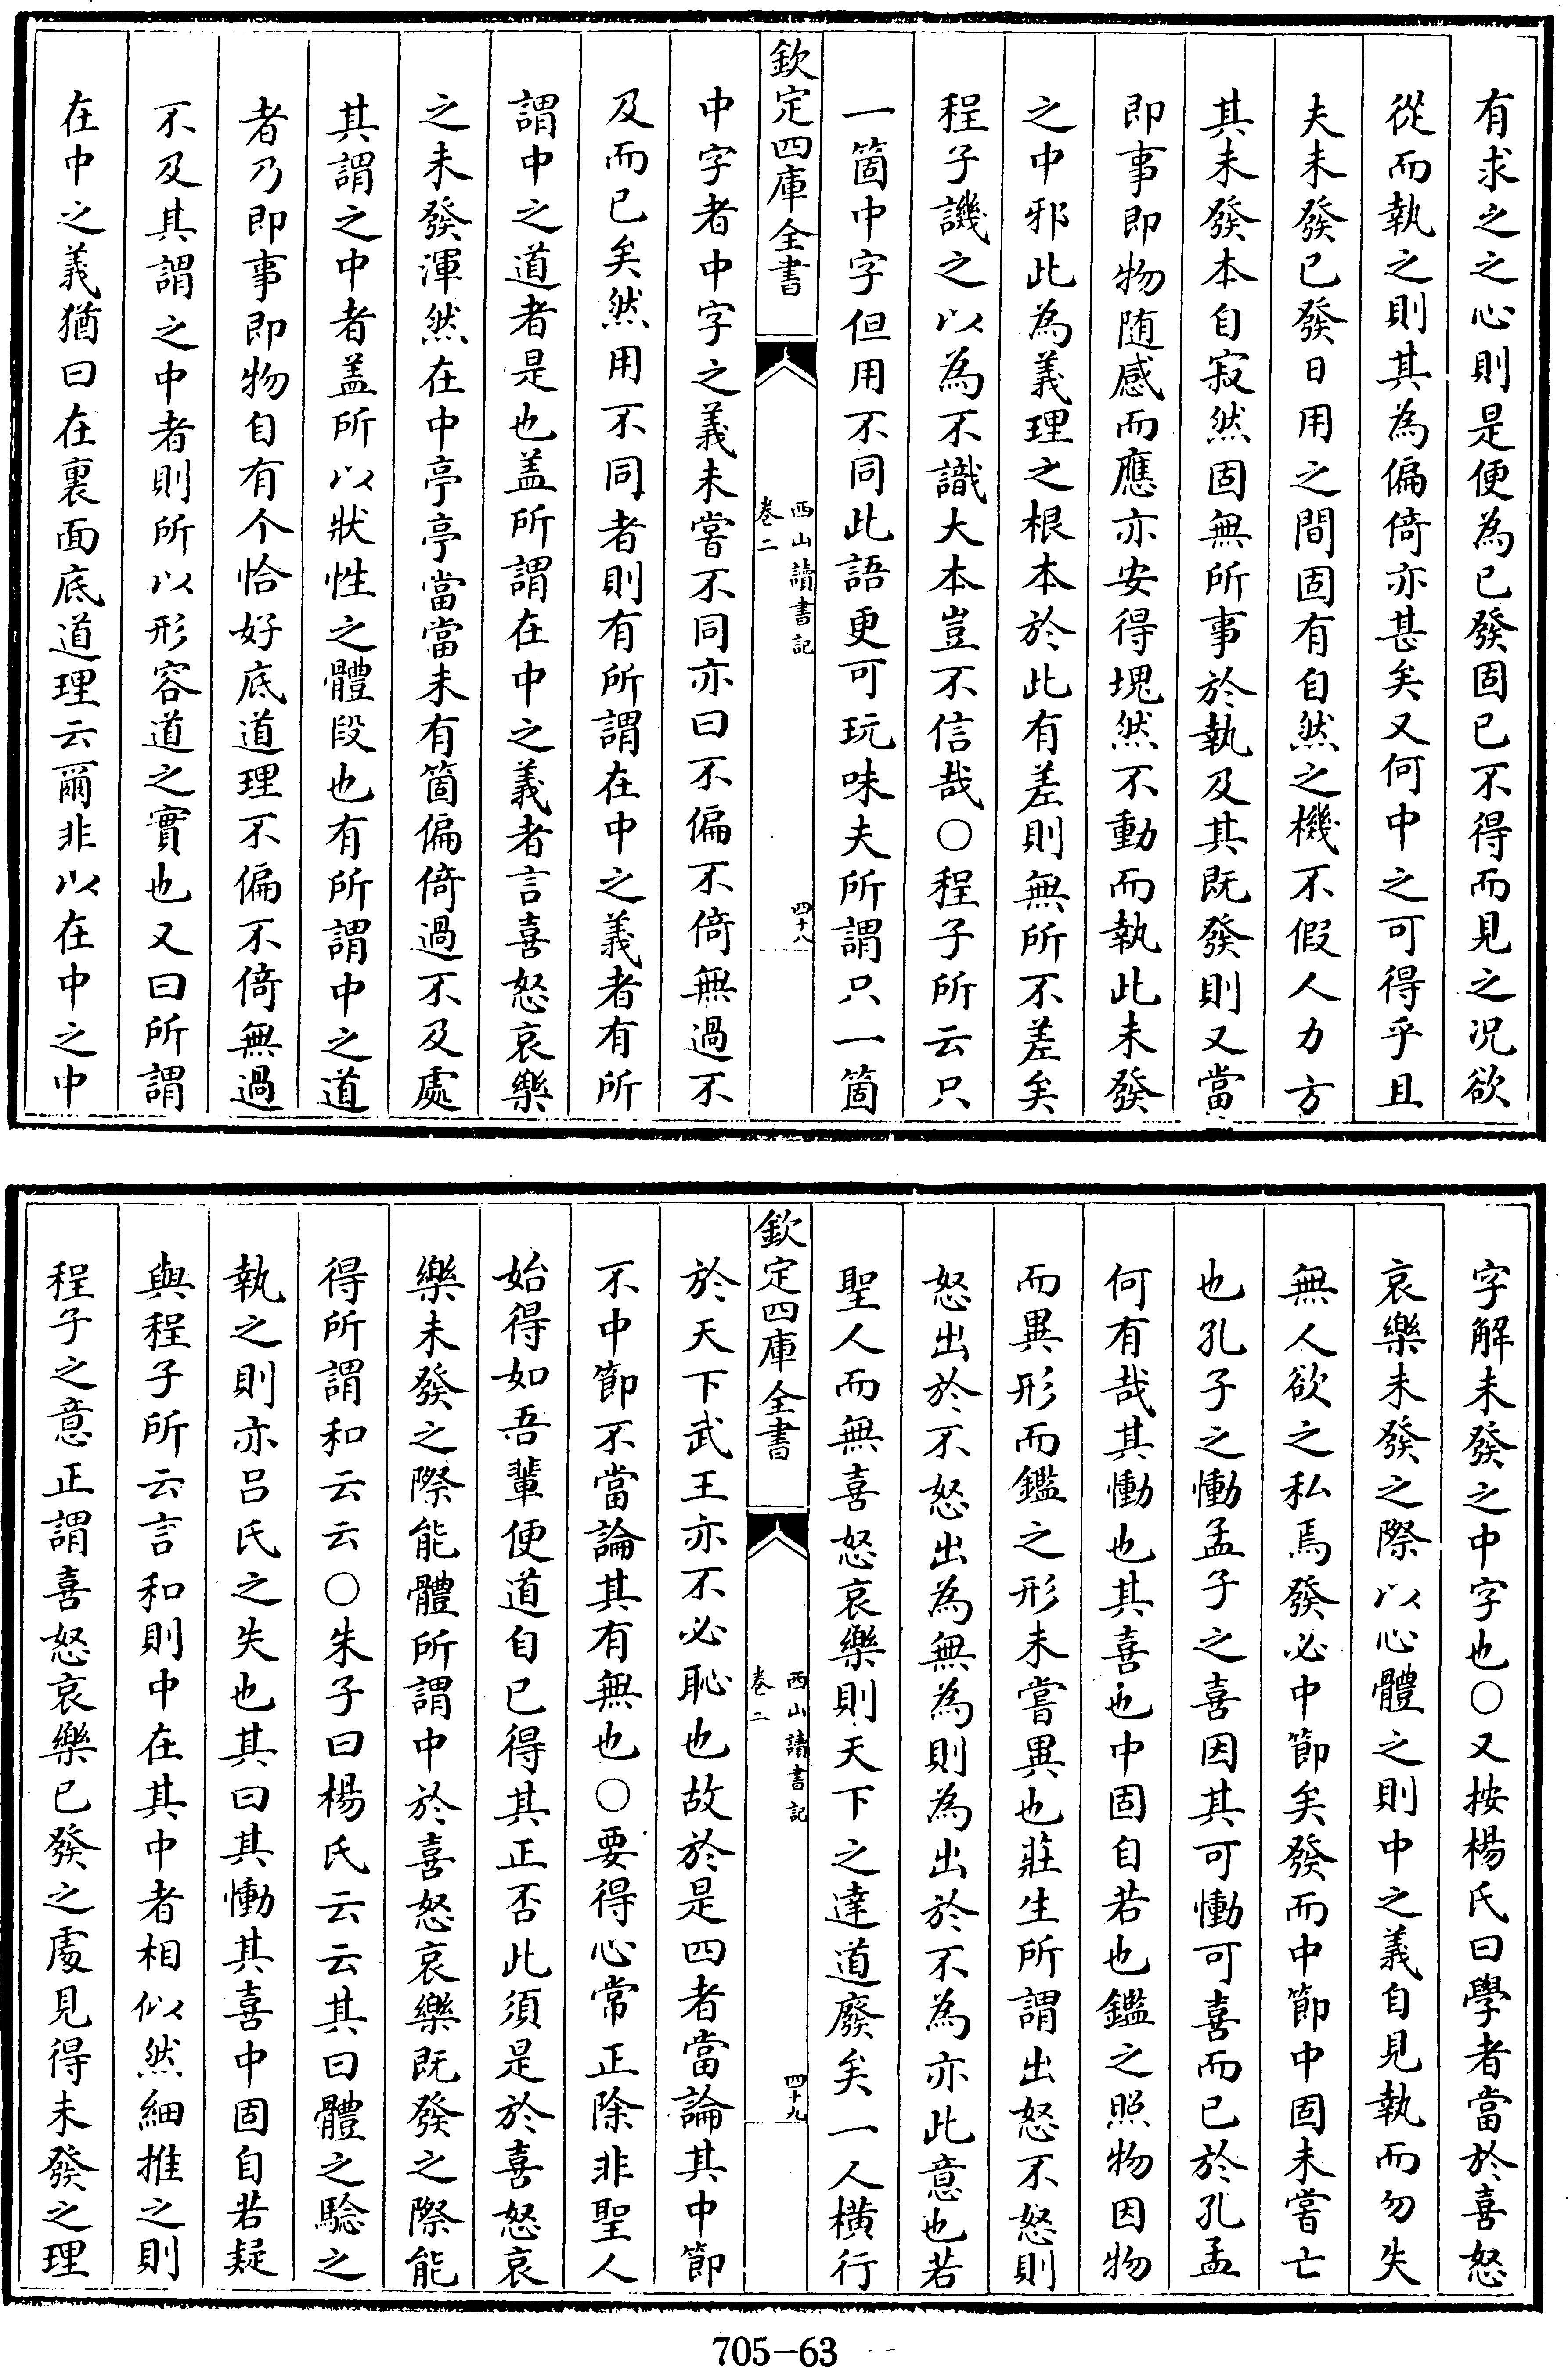 有求之之心則是便為已發固已不得而見之况欲
從而執之則其為偏倚亦甚矣又何中之可得乎且
夫未發已發日用之間固有自然之機不假人力方
其未發本自寂然固無所事於執及其既發則又當
即事即物随感而應亦安得塊然不動而執此未發
之中邪此為義理之根本於此有差則無所不差矣
程子譏之以為不識大本豈不信哉○程子所云只
一箇中字但用不同此語更可玩味夫所謂只一箇
欽定四庫全書
西山讀書記
卷二
四十八
中字者中字之義未嘗不同亦曰不偏不倚無過不
及而已矣然用不同者則有所謂在中之義者有所
謂中之道者是也盖所謂在中之義者言喜怒哀樂
之未發渾然在中亭亭當當未有箇偏倚過不及處
其謂之中者盖所以狀性之體段也有所謂中之道
者乃即事即物自有个恰好底道理不偏不倚無過
不及其謂之中者則所以形容道之實也又曰所謂
在中之義猶曰在裏面底道理云爾非以在中之中
字解未發之中字也○又按楊氏曰學者當於喜怒
哀樂未發之際以心體之則中之義自見執而勿失
無人欲之私焉發必中節矣發而中節中固未嘗亡
也孔子之慟孟子之喜因其可慟可喜而已於孔孟
何有哉其慟也其喜也中固自若也鑑之照物因物
而異形而鑑之形未嘗異也莊生所謂出怒不怒則
怒出於不怒出為無為則為出於不為亦此意也若
聖人而無喜怒哀樂則天下之達道廢矣一人橫行
欽定四庫全書
西山讀書記
卷二
四十九
於天下武王亦不必恥也故於是四者當論其中節
不中節不當論其有無也○要得心常正除非聖人
始得如吾輩便道自已得其正否此須是於喜怒哀
樂未發之際能體所謂中於喜怒哀樂既發之際能
得所謂和云云○朱子曰楊氏云云其曰體之驗之
執之則亦吕氏之失也其曰其慟其喜中固自若疑
與程子所云言和則中在其中者相似然細推之則
程子之意正謂喜怒哀樂已發之處見得未發之理
705-63